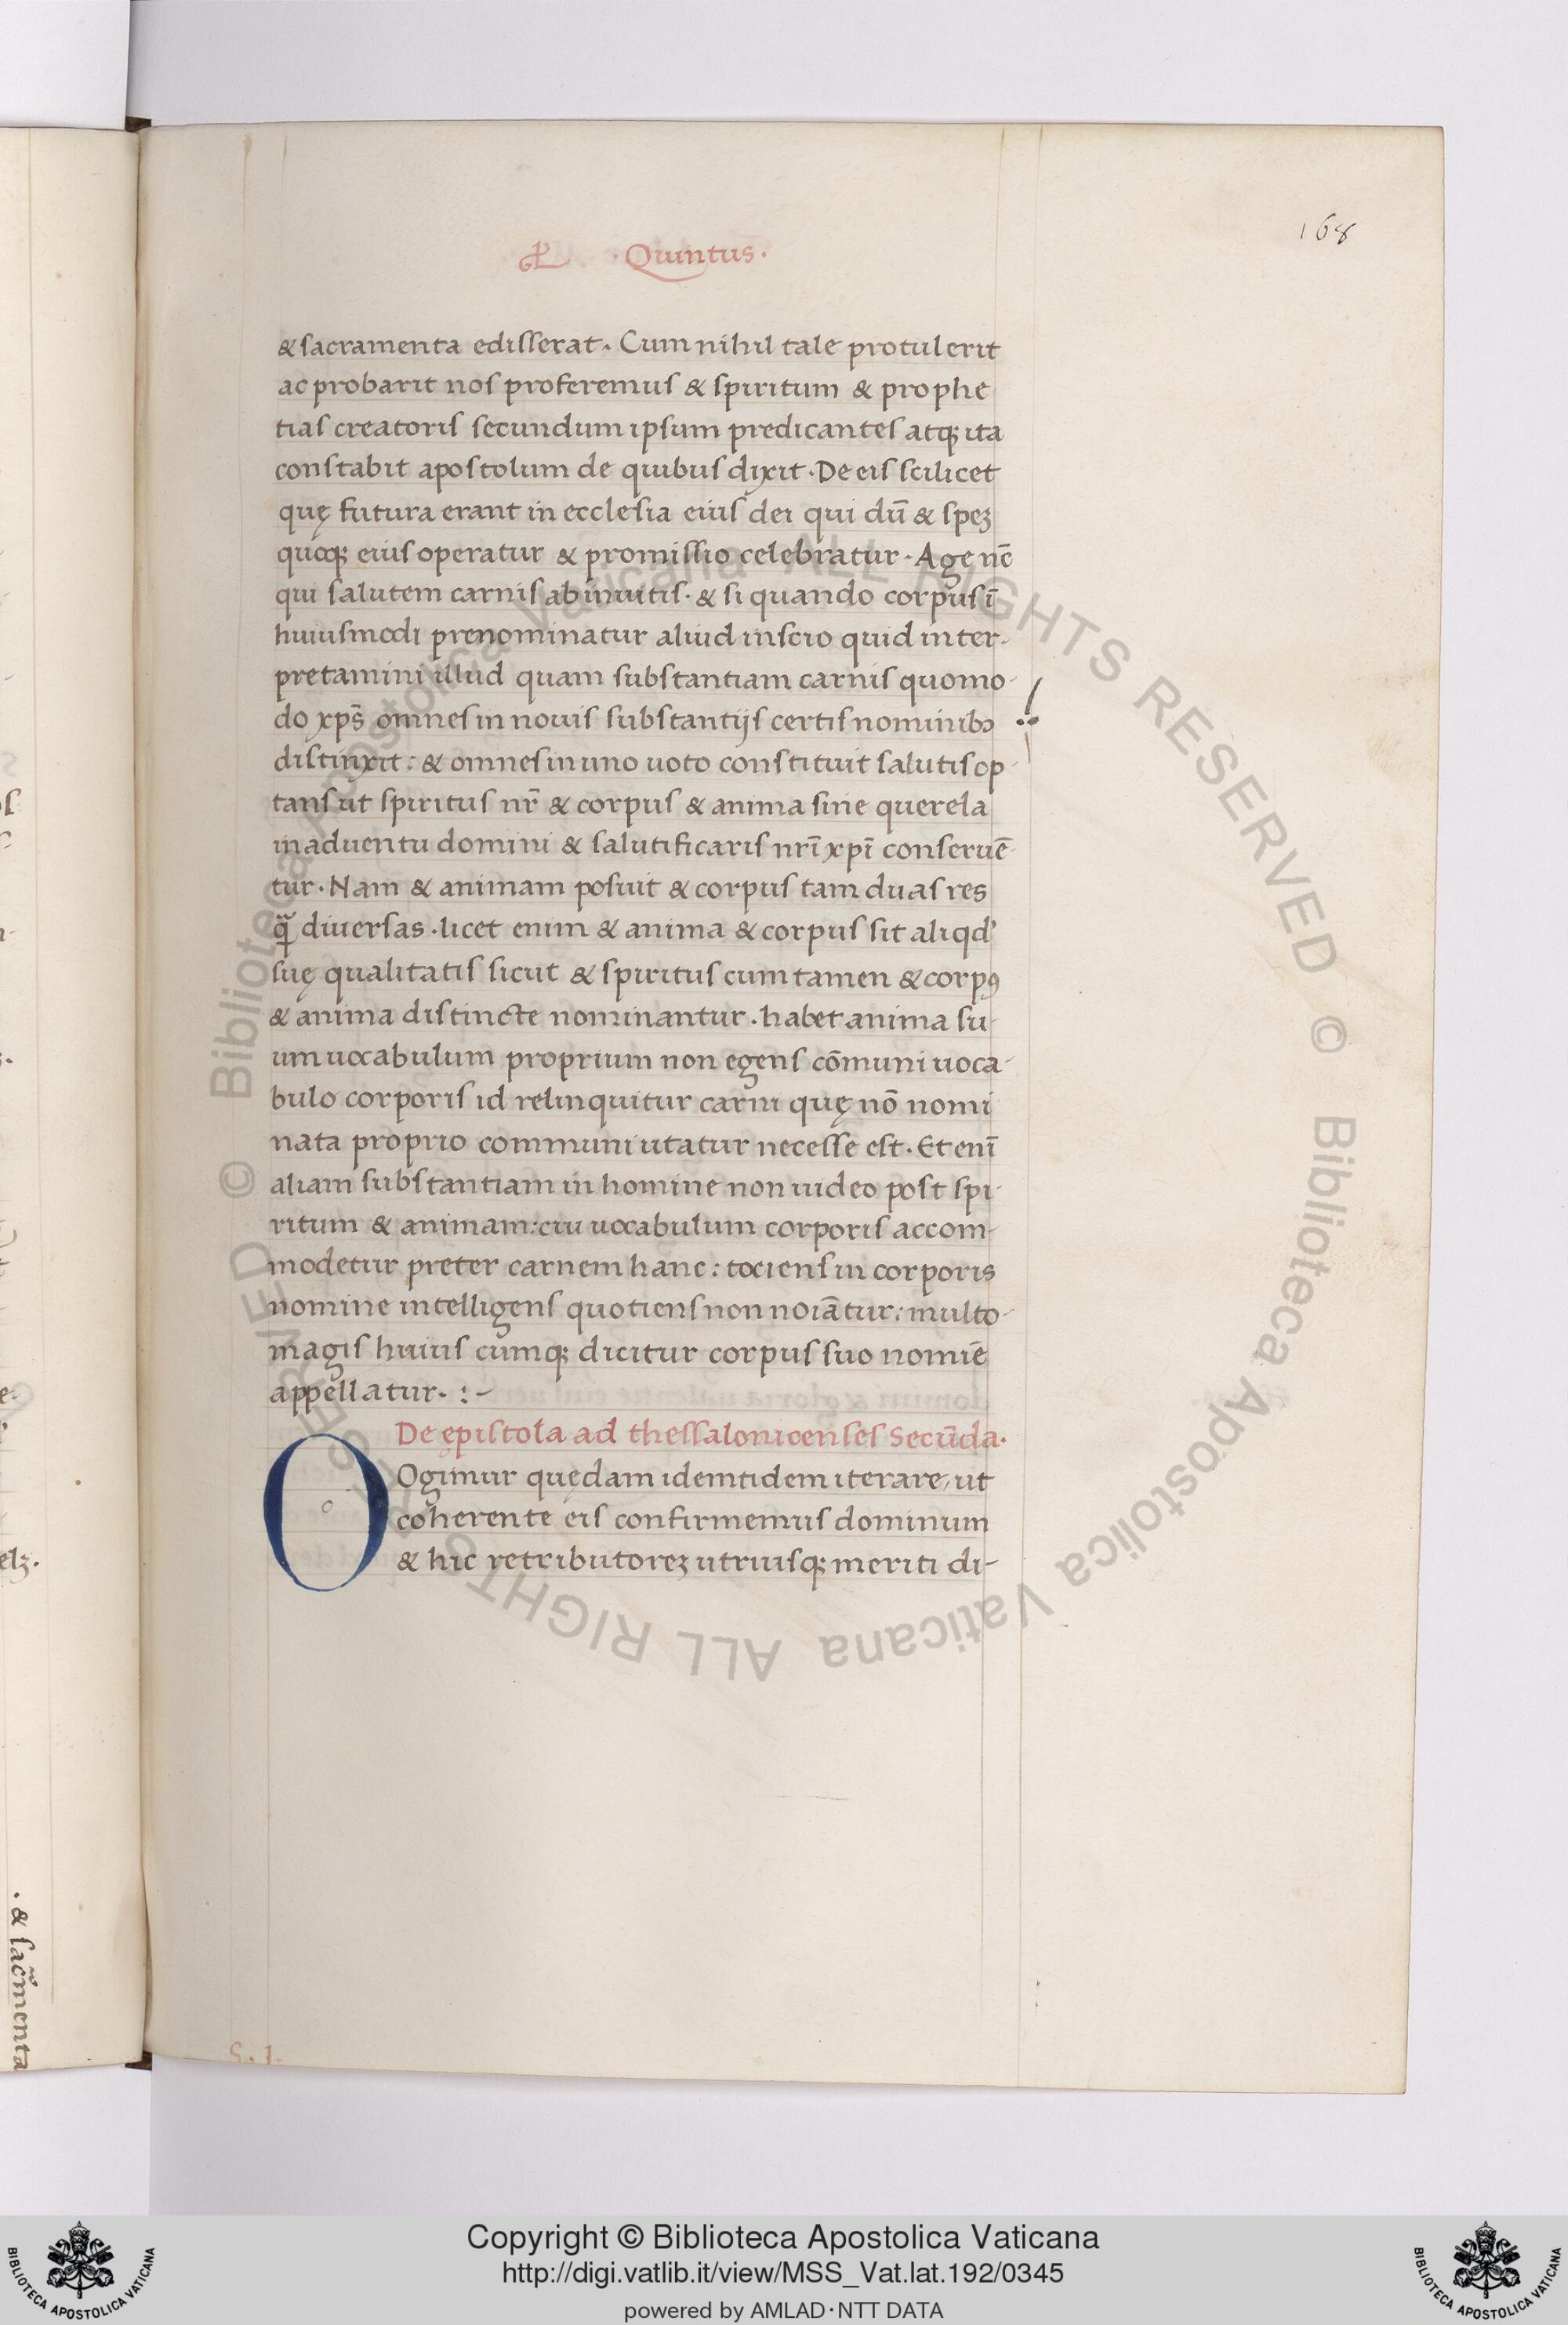 168
· Quintus ·
& sacramenta edisserat. Cum nihil tale protulerit
ac probarit nos proferemus & spiritum & prophe
tias creatoris secundum ipsum predicantes atq; ita
constabit apostolum de quibus dixit. De eis scilicet
quę futura erant in ecclesia eius dei qui dū & spez
quoq; eius operatur & promissio celebratur. Age nc̄
qui salutem carnis abinuitis. & si quando corpus ī
huiusmodi prenominatur aliud inscio quid inter-
pretamini illud quam substantiam carnis quomo-
do xps̄ omnes in nouis substantijs certis nominibꝫ
distinxit: & omnes in uno uoto constituit salutis op-
tans ut spiritus nr̄ & corpus & anima sine querela
in aduentu domini & salutificaris nrī xpī conseruē-
tur. Nam & animam posuit & corpus tam duas res
q̄ȝ diuersas. licet enim & anima & corpus sit aliqd'
suę qualitatis sicut & spiritus cum tamen & corpꝰ
& anima distincte nominantur. habet anima su-
um uocabulum proprium non egens cōmuni uoca-
bulo corporis id relinquitur carni quę nō nomi
nata proprio communi utatur necesse est. Et enī
aliam substantiam in homine non uideo post spi-
ritum & animam: cui uocabulum corporis accom-
modetur preter carnem hanc: tociens in corporis
nomine intelligens quotiens non noiātur: multo-
magis huius cumq; dicitur corpus suo nomiē
appellatur. :-
De epistola ad thessalonicenses Secūda.
O
Ogimur quędam idemtidem iterare, ut
coherente eis confirmemus dominum
& hic retributorez utriusq; meriti di-
. & sac̄menta
© Biblioteca Apostolica Vaticana ALL RIGHTS RESERVED © Biblioteca Apostolica Vaticana ALL RIGHTS RESERVED
Copyright © Biblioteca Apostolica Vaticana
http://digi.vatlib.it/view/MSS_Vat.lat.192/0345
powered by AMLAD·NTT DATA
BIBLIOTECA APOSTOLICA VATICANA
BIBLIOTECA APOSTOLICA VATICANA